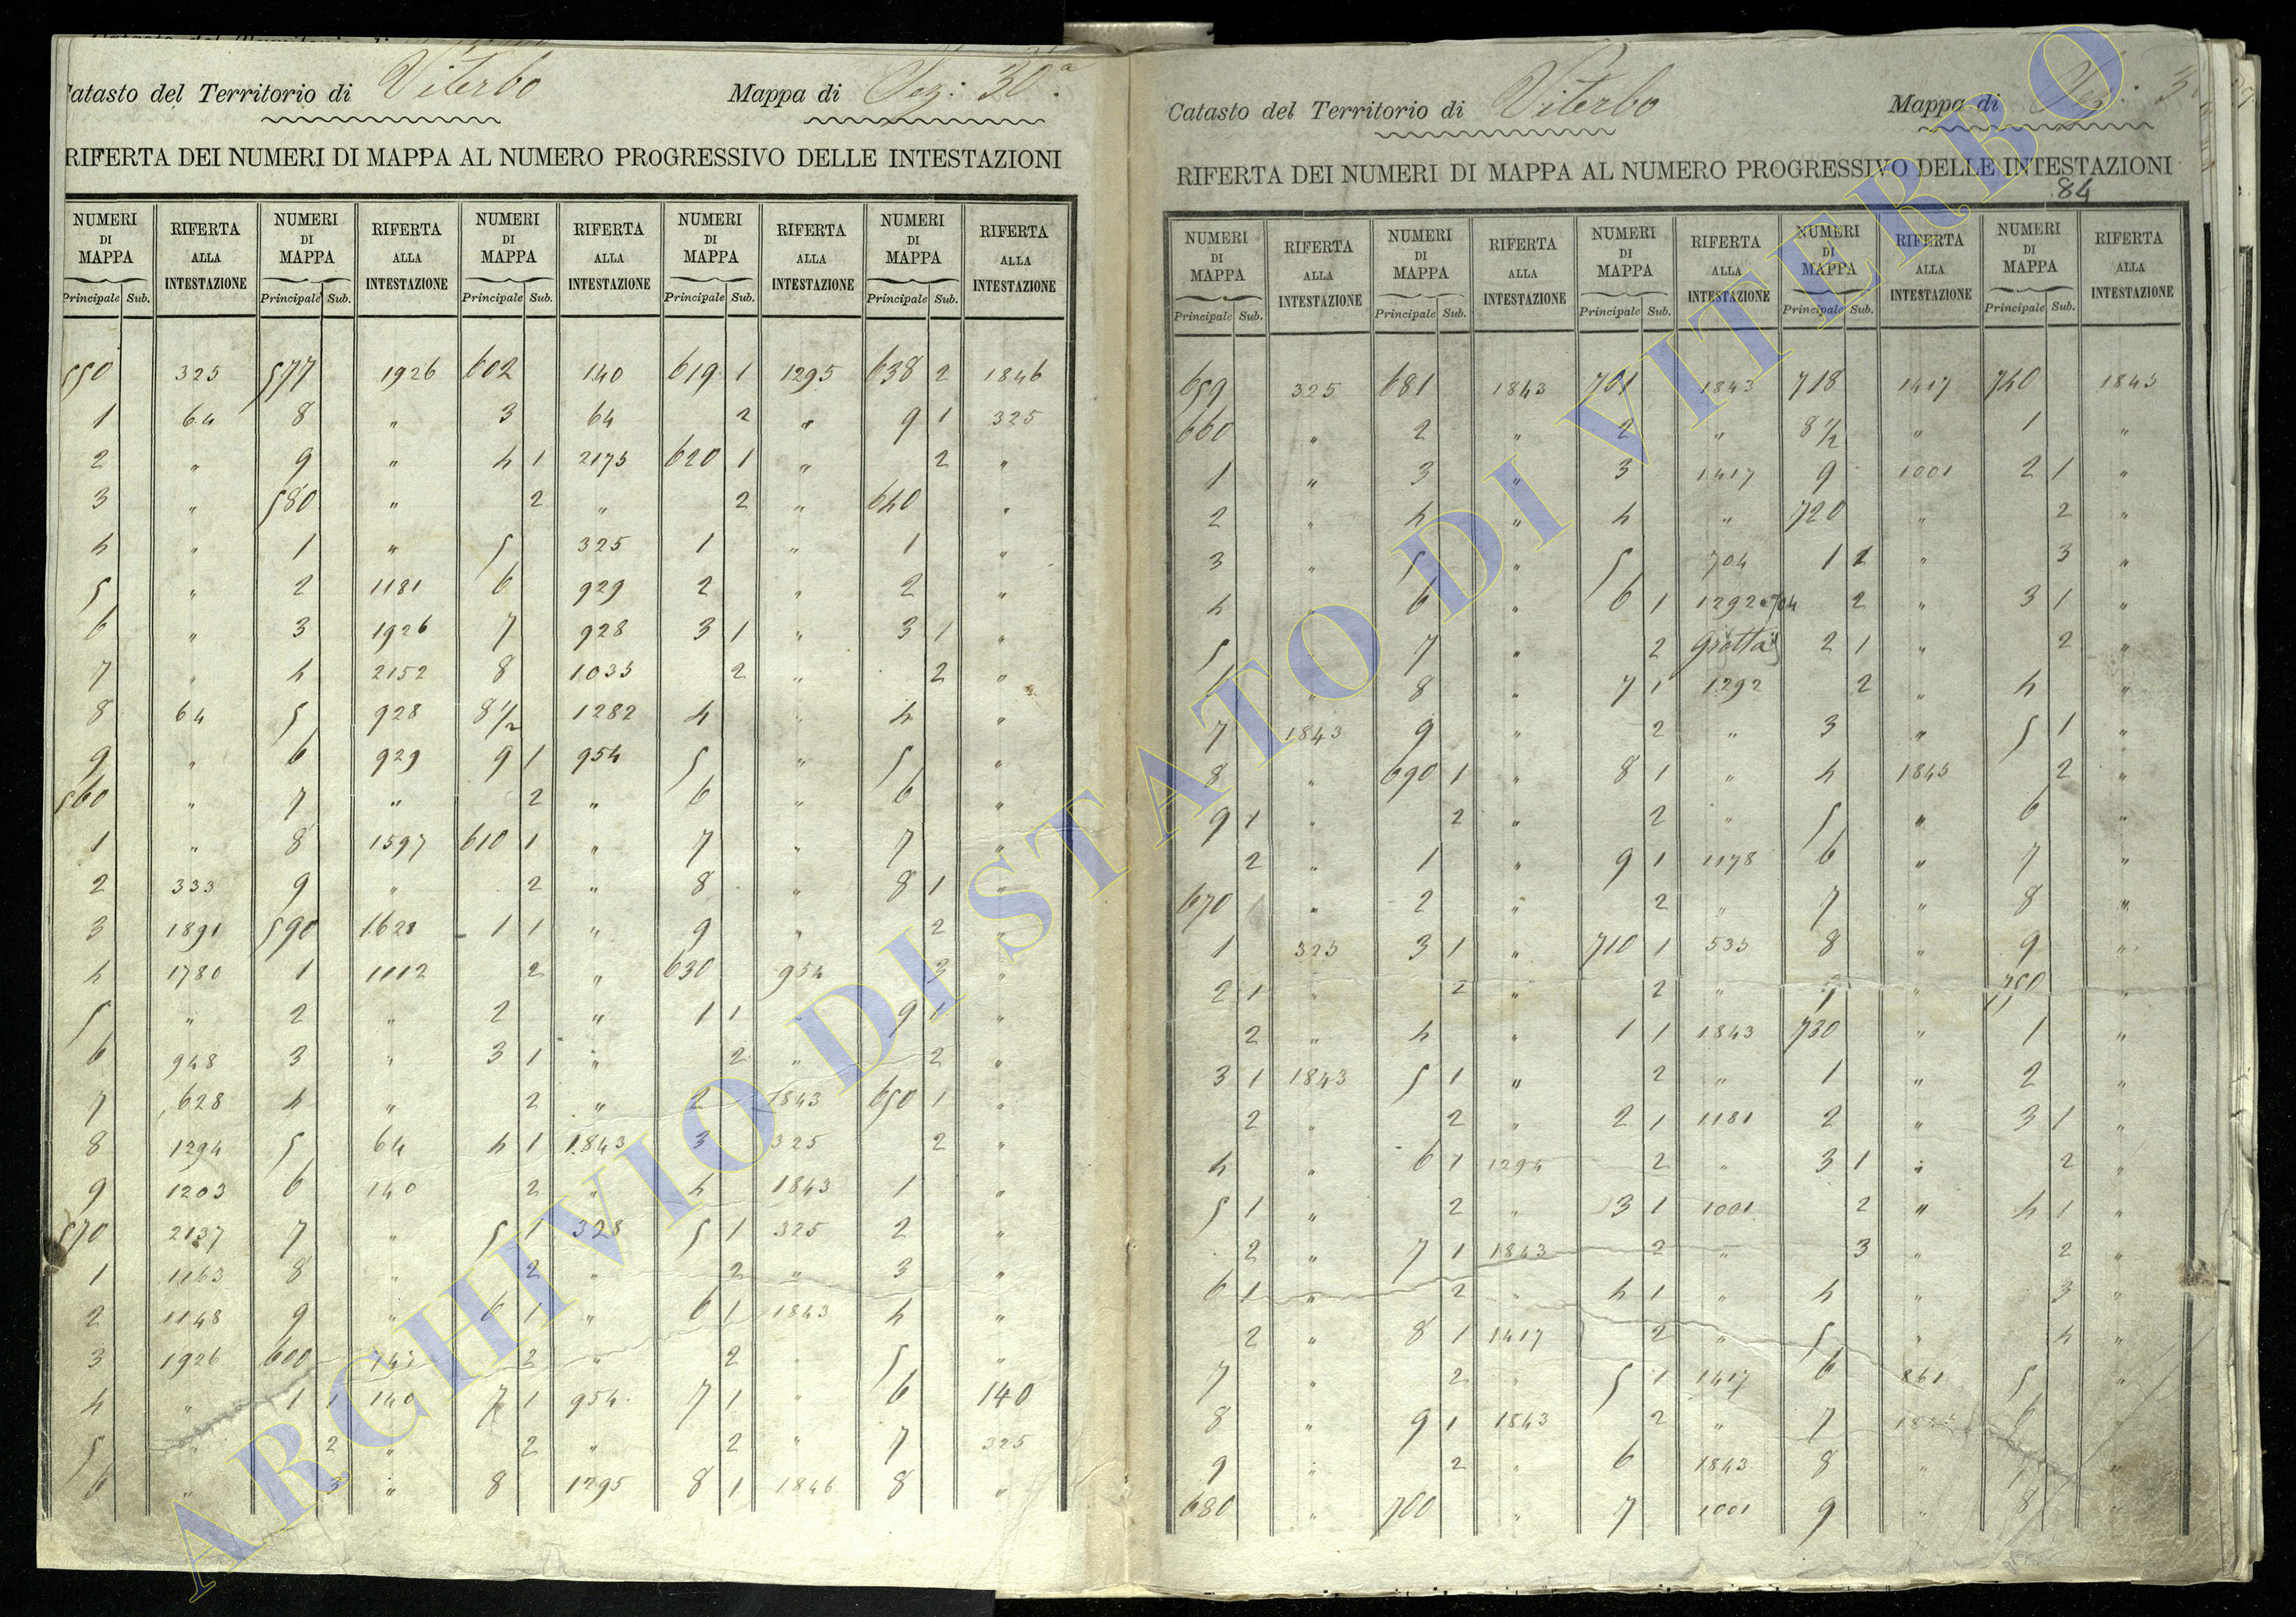 Catasto del Territorio di Viterbo Mappa di Sez: 30.a
RIFERTA DEI NUMERI DI MAPPA AL NUMERO PROGRESSIVO DELLE INTESTAZIONI
NUMERI DI MAPPA RIFERTA ALLA INTESTAZIONE NUMERI DI MAPPA RIFERTA ALLA INTESTAZIONE NUMERI DI MAPPA RIFERTA ALLA INTESTAZIONE NUMERI DI MAPPA RIFERTA ALLA INTESTAZIONE NUMERI DI MAPPA RIFERTA ALLA INTESTAZIONE
Principale Sub. Principale Sub. Principale Sub. Principale Sub. Principale Sub.
550 325 577 1926 602 140 619 1 1295 638 2 1846
1 64 8 " 3 64 2 " 9 1 325
2 " 9 " 4 1 2175 620 1 " 2 "
3 " 580 " 2 " 2 " 640 "
4 " 1 " 5 325 1 " 1 "
5 " 2 1181 6 929 2 " 2 "
6 " 3 1926 7 928 3 1 " 3 1 "
7 " 4 2152 8 1035 2 " 2 "
8 64 5 928 8 1/2 1282 4 " 4 "
9 " 6 929 9 1 954 5 " 5 "
560 " 7 " 2 " 6 " 6 "
1 " 8 1597 610 1 " 7 " 7 "
2 333 9 " 2 " 8 " 8 1 "
3 1891 590 1628 1 1 " 9 " 2 "
4 1780 1 1112 2 " 630 954 3 "
5 " 2 " 2 " 1 1 " 9 1 "
6 948 3 " 3 1 " 2 " 2 "
7 628 4 " 2 " 2 1843 650 1 "
8 1294 5 64 4 1 1843 3 325 2 "
9 1203 6 140 2 " 4 1843 1 "
570 2137 7 " 5 1 328 5 1 325 2 "
1 1163 8 " 2 " 2 " 3 "
2 1148 9 " 6 1 " 6 1 1843 4 "
3 1926 600 2 " 2 " 5 "
4 " 1 1 140 7 1 954 7 1 " 6 140
5 " 2 " 2 " 2 " 7 325
6 " 3 " 8 1295 8 1 1846 8 "
Catasto del Territorio di Viterbo Mappa di Sez:
RIFERTA DEI NUMERI DI MAPPA AL NUMERO PROGRESSIVO DELLE INTESTAZIONI
84
NUMERI DI MAPPA RIFERTA ALLA INTESTAZIONE NUMERI DI MAPPA RIFERTA ALLA INTESTAZIONE NUMERI DI MAPPA RIFERTA ALLA INTESTAZIONE NUMERI DI MAPPA RIFERTA ALLA INTESTAZIONE NUMERI DI MAPPA RIFERTA ALLA INTESTAZIONE
Principale Sub. Principale Sub. Principale Sub. Principale Sub. Principale Sub.
659 325 681 1843 701 1843 718 1417 740 1843
660 " 2 " 2 " 8 1/2 " 1 "
1 " 3 " 3 1417 9 1001 2 1 "
2 " 4 " 4 " 720 " 2 "
3 " 5 " 5 704 1 1 " 3 "
4 " 6 " 6 1 1292 e 704 2 " 3 1 "
5 " 7 " 2 grotta 2 1 " 2 "
6 " 8 " 7 1 1292 2 " 4 "
7 1843 9 " 2 " 3 " 5 1 "
8 " 690 1 " 8 1 " 4 1843 2 "
9 1 " 2 " 2 " 5 " 6 "
2 " 1 " 9 1 1178 6 " 7 "
670 1 " 2 " 2 " 7 " 8 "
1 325 3 1 " 710 1 535 8 " 9 "
2 1 " 2 " 2 " 9 " 750 "
2 " 4 " 1 1 1843 730 " 1 "
3 1 1843 5 1 " 2 " 1 " 2 "
2 " 2 " 2 1 1181 2 " 3 1 "
4 " 6 1 1294 2 " 3 1 " 2 "
5 1 " 2 " 3 1 1001 2 " 4 1 "
2 " 7 1 1843 2 " 3 " 2 "
6 1 " 2 " 4 1 " 4 " 3 "
2 " 8 1 1417 2 " 5 " 4 "
7 " 2 " 5 1 1417 6 861 5 "
8 " 9 1 1843 2 " 7 6 "
9 " 2 " 6 1843 8 " 7 "
680 " 700 " 7 1001 9 " 8 "
ARCHIVIO DI STATO DI VITERBO